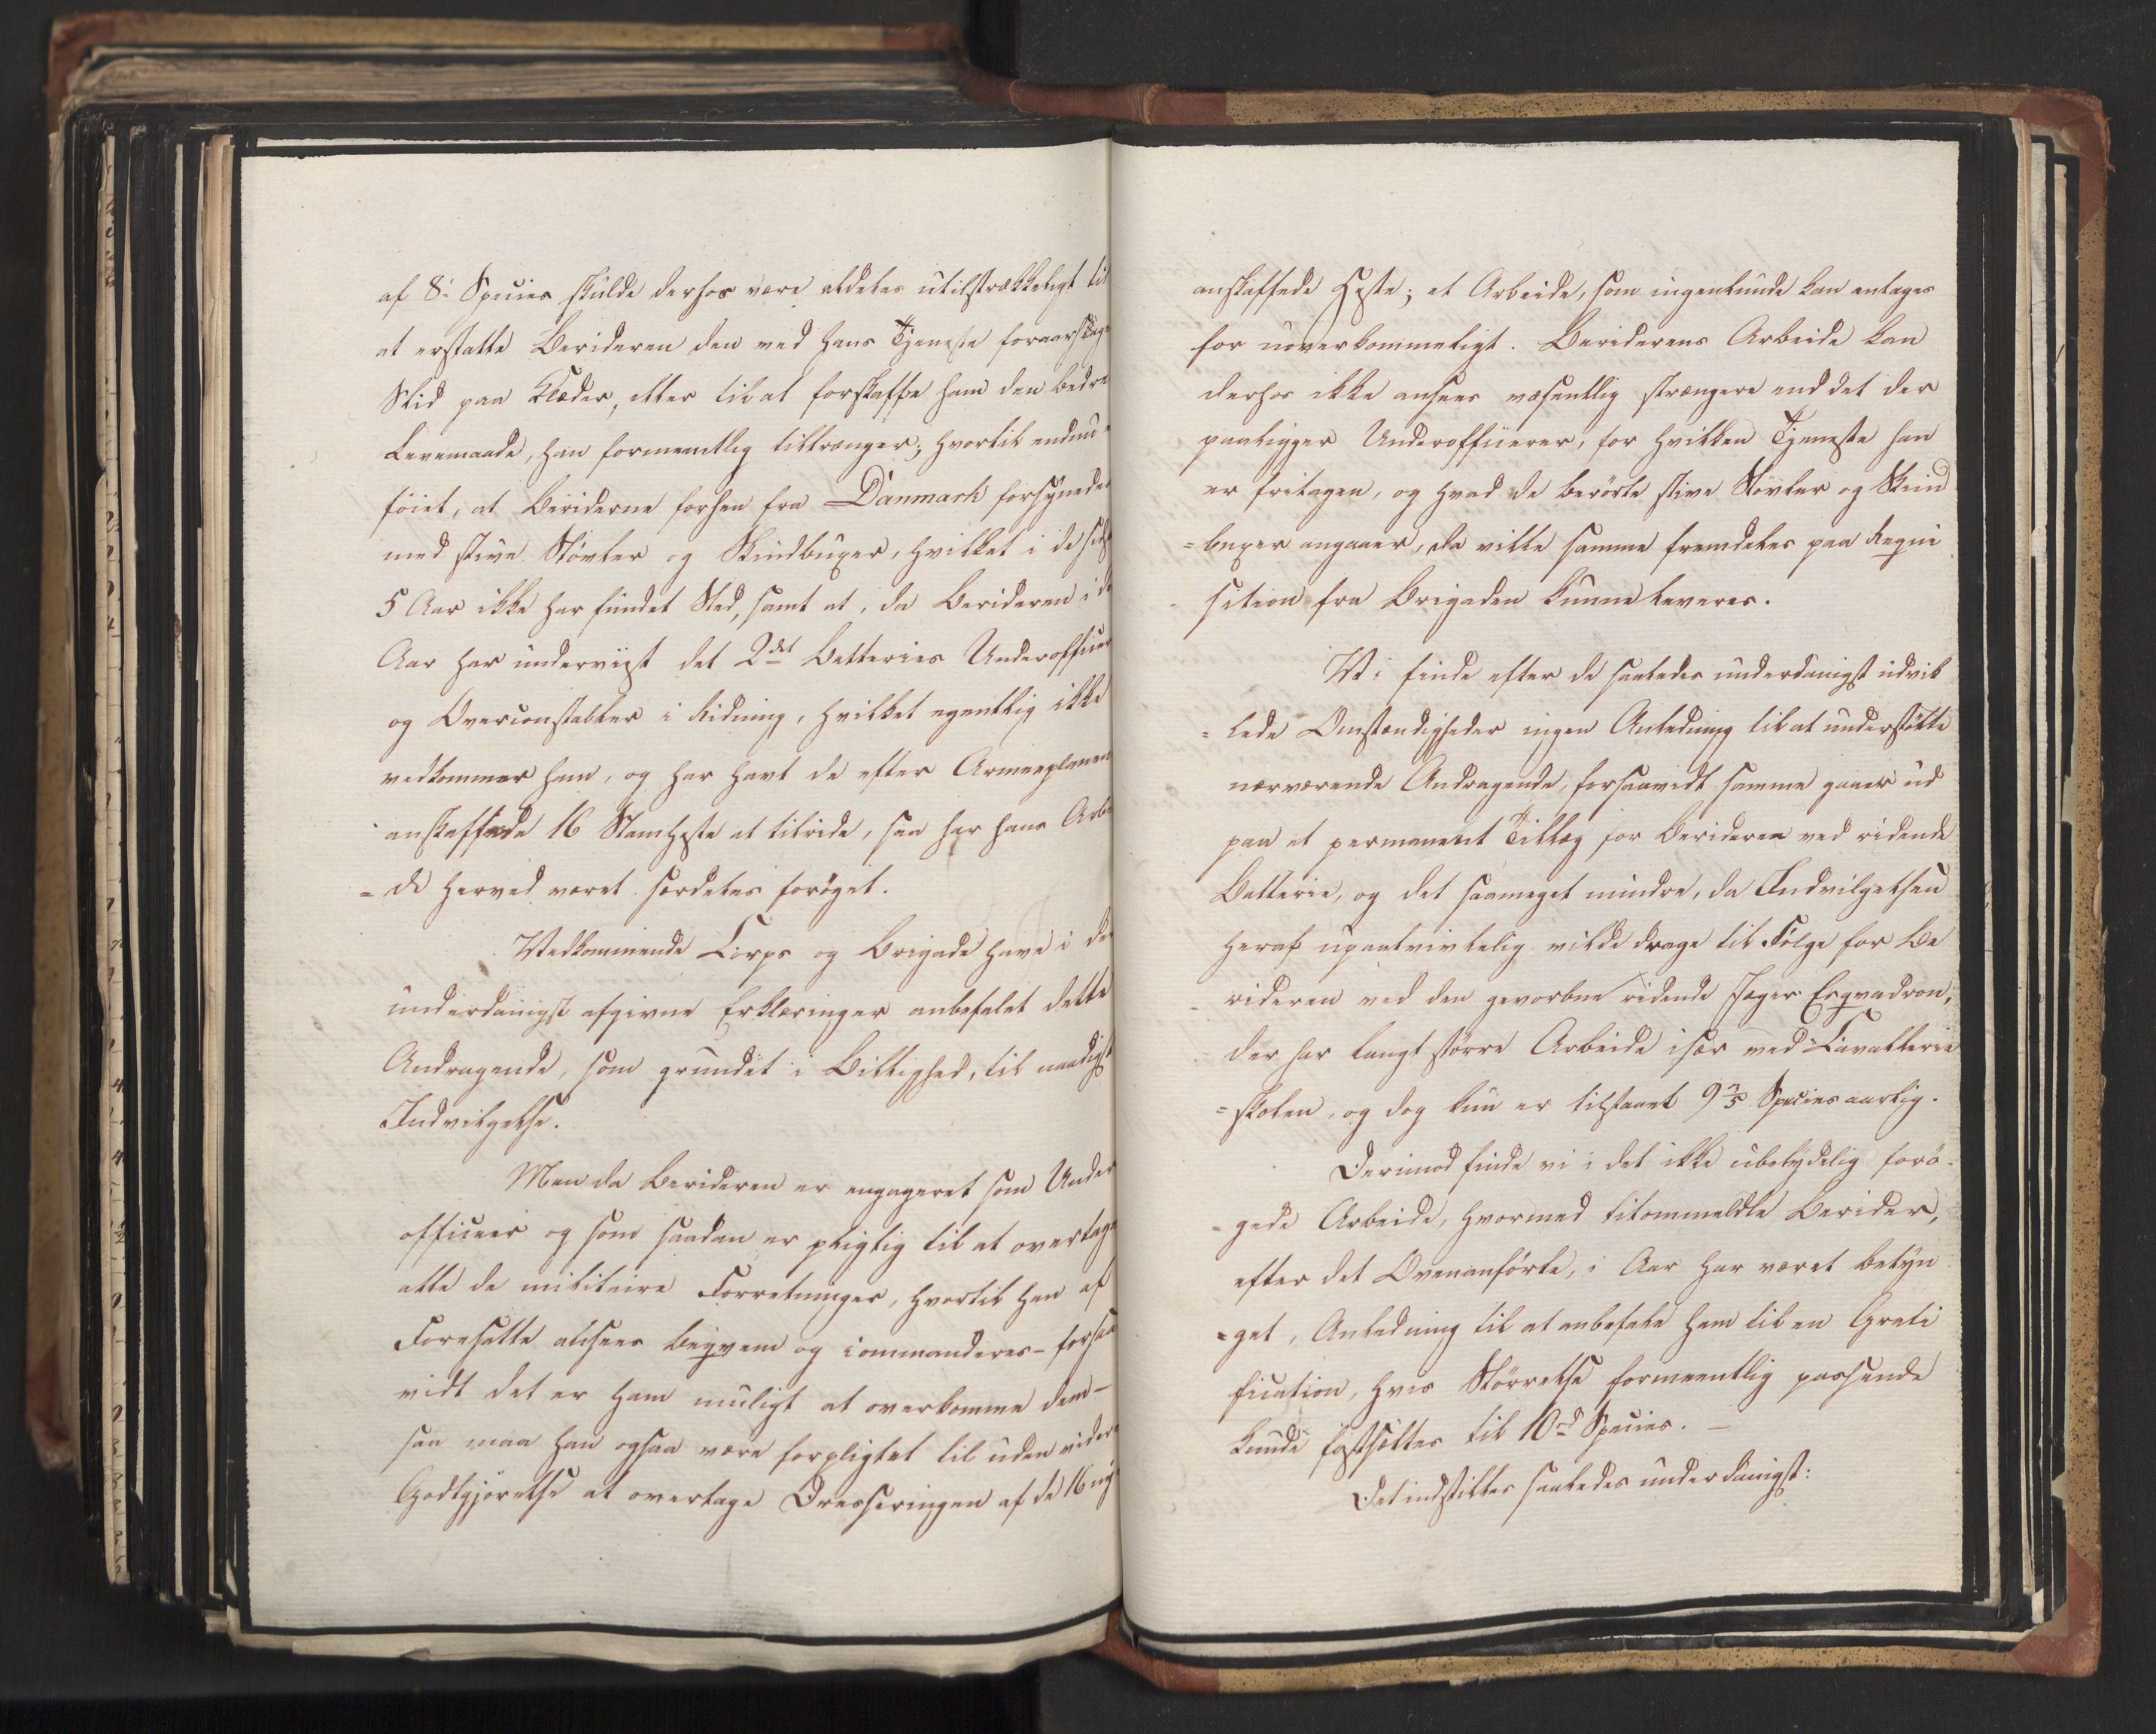 af 8. Species skulde derhos være aldeles utilstrækkeligt til
at erstatte Berideren den ved hans Tjeneste foraarsage
Slid paa Klæder, eller til at forskaffe ham den bedre
Levemaade, han formeentlig tiltrænger; hvortil endnu
föiet, at Beriderne forhen fra Danmark forsynedes
med stive Støvler og Skindbuxer, hvilket i de sidst
5 Aar ikke har fundet Sted, samt at, da Berideren i de
Aar har underviist det 2det Batteries Underofficer
og Overconstabler i Ridning, hvilket egentlig ikke
vedkommer ham, og har havt de efter Armeeplanen
anskaffede 16 Stamheste at tilride, saa har hans Arbei
=de herved været særdeles forøget.
Vedkommende Corps og Brigade have i de
underdanigst afgivne Erklæringer anbefalet dette
Andragende, som grundet i Billighed, til naadigst
Indvilgelse.
Men da Berideren er engageret som Under
officeer og som saadan er pligtig til at overtage
alle de militaire Forretninger, hvortil han af
Foresatte ansees beqvem og commanderes – forsaa
vidt det er ham muligt at overkomme dem –
saa maa han ogsaa være forpligtet til uden videre
Godtgjørelse at overtage Dresseringen af de 16 ny
anskaffede Heste; et Arbeide, som ingenlunde kan antages
for uoverkommeligt. Beriderens Arbeide kan
derhos ikke ansees væsentlig strængere end det der
paaligger Underofficerer, for hvilken Tjeneste han
er fritagen, og hvad de berörte stive Støvler og Skind
=buxer angaaer, da ville samme fremdeles paa Requi
sition fra Brigaden kunne leveres.
Vi finde efter de saaledes underdanigst udvik
=lede Omstændigheder ingen Anledning til at understøtte
nærværende Andragende, forsaavidt samme gaaer ud
paa et permanent Tillæg for Berideren ved ridende
Batterie, og det saameget mindre, da Indvilgelsen
heraf upaatvivlelig vilde drage til Følge for Be
rideren ved den gevorbne ridende Jæger Esqvadron,
der har langt større Arbeide især ved Cavallerie
=skolen, og dog kun er tilstaaet 9 3/5 Species aarlig.
Derimod finde vi i det ikke ubetydelig forø-
=gede Arbeide, hvormed titommeldte Berider,
efter det Ovenanførte, i Aar har været betyn
=get, Anledning til at anbefale ham til en Grati
fication, hvis Størrelse formeentlig passende
kunde fastsættes til 10 d Species. –
Det indstilles saaledes underdanigst: